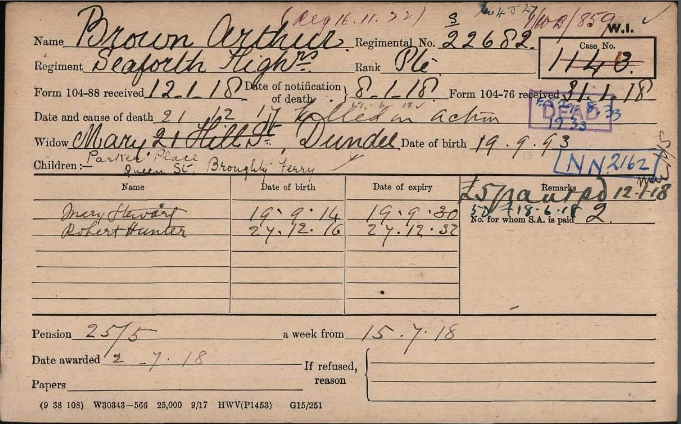 (Reg 16.11.22)
W.I.
Name Brown Arthur. Regimental No. S 22682.
Case No. 1143.
Regiment Seaforth Highrs Rank Pte
Form 104-88 received 12.1.18 Date of notification of death 8.1.18 Form 104-76 received 31.1.18
Date and cause of death 21 12 17 Killed in action
DEAD
1933
Widow Mary 21 Hill St, Dundee Date of birth 19.9.93
Parker Place
Queen St, Broughty Ferry
NN.2162
Children:—
Name Date of birth Date of expiry Remarks
£5 12-1-18
No. for whom S.A. is paid 2.
Mary Stewart 19.9.14 19.9.30
Robert Hunter 27.12.16 27.12.32
Pension 25/5 a week from 15.7.18
Date awarded 2.7.18
If refused, reason
Papers
(9 38 108) W30343—566 25,000 9/17 HWV(P1453) G15/251